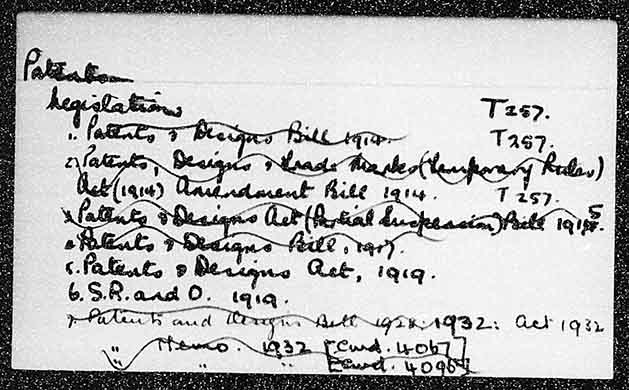 Patents
Legislation T257.
1. Patents & Designs Bill 1914. T257.
2) Patents, Designs & Trade Marks (Temporary Rules)
Act (1914) Amendment Bill 1914. T257.
3. Patents & Designs Act (Partial Suspension) Bill 1915.
4. Patents & Designs Bill, 1917.
5. Patents & Designs Act, 1919.
6. S.R. and O. 1919.
7. Patents and Designs Bill 1932: Act 1932
" Memo. 1932 [Cmd. 4067]
" " [Cmd. 4095]